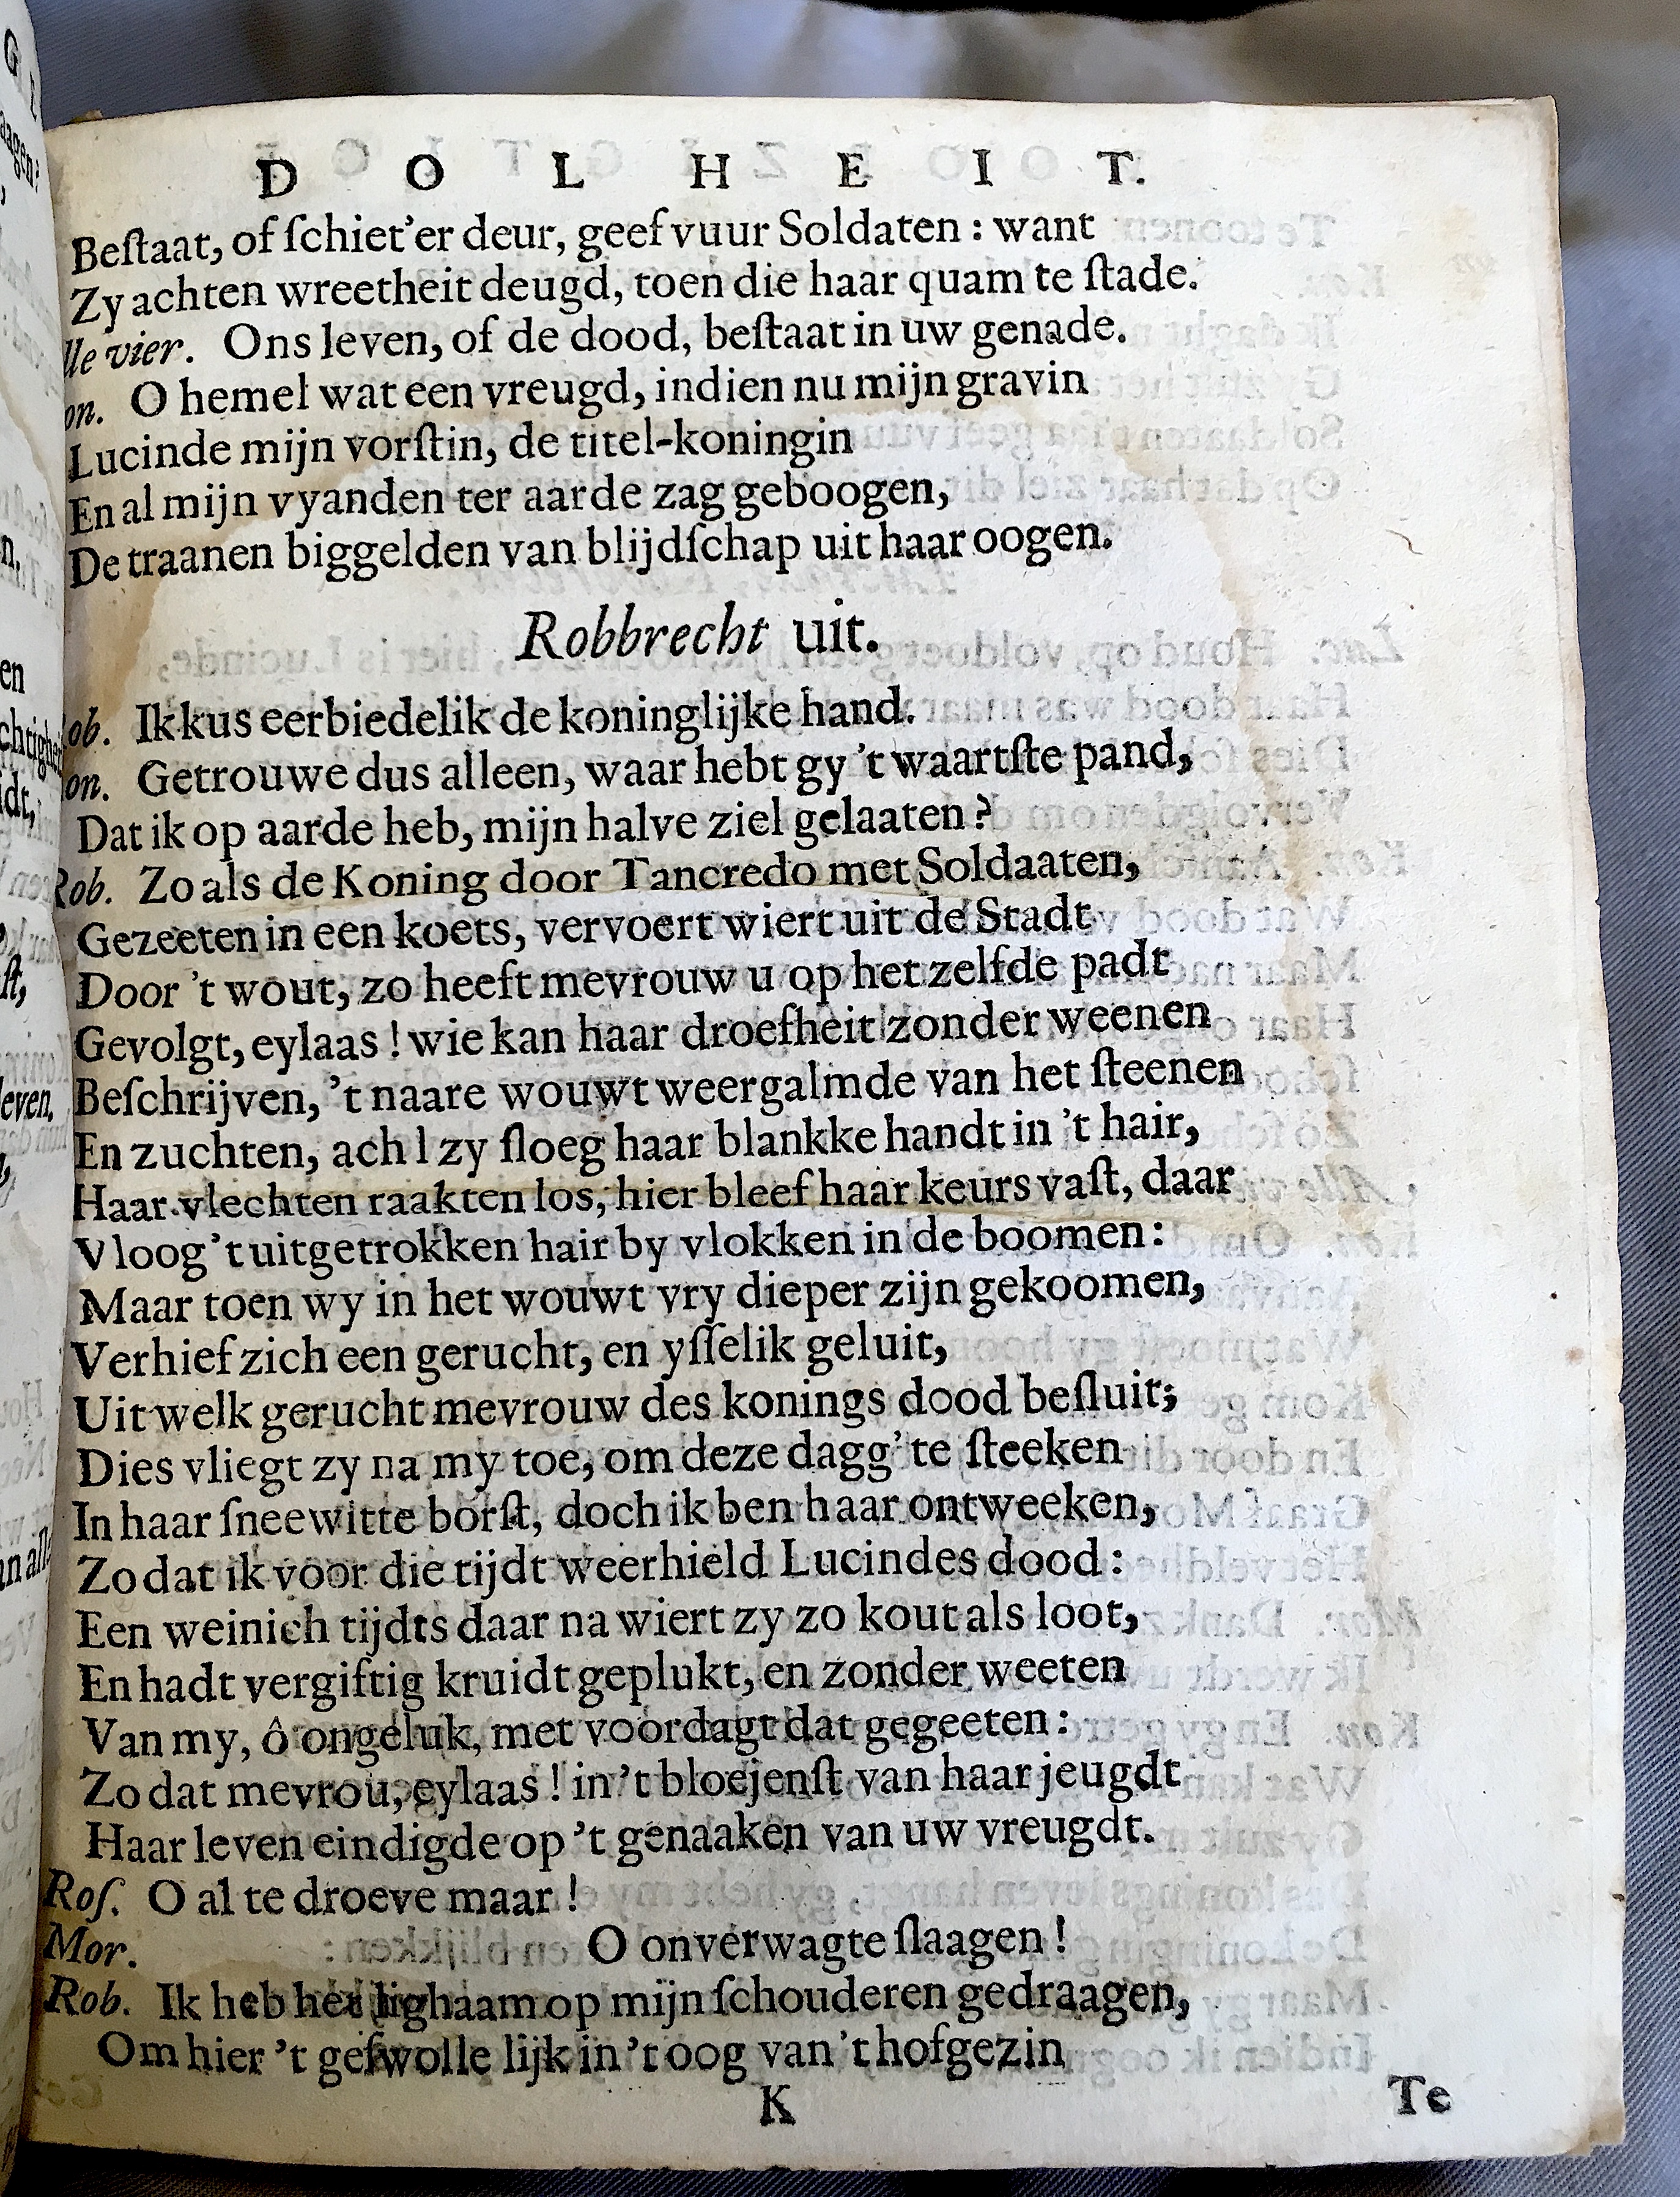 D O L H E I T.
Beſtaat, of ſchiet’er deur, geef vuur Soldaten: want
Zy achten wreetheit deugd, toen die haar quam te ſtade.
lle vier. Ons leven, of de dood, beſtaat in uw genade.
on. O hemel wat een vreugd, indien nu mijn gravin
Lucinde mijn vorſtin, de titel-koningin
En al mijn vyanden ter aarde zag geboogen,
De traanen biggelden van blijdſchap uit haar oogen.
Robbrecht uit.
ob. Ik kus eerbiedelik de koninglijke hand.
on. Getrouwe dus alleen, waar hebt gy ’t waartſte pand,
Dat ik op aarde heb, mijn halve ziel gelaaten?
Rob. Zo als de Koning door Tancredo met Soldaaten,
Gezeeten in een koets, vervoert wiert uit de Stadt
Door ’t wout, zo heeft mevrouw u op het zelfde padt
Gevolgt, eylaas! wie kan haar droefheit zonder weenen
Beſchrijven, ’t naare wouwt weergalmde van het ſteenen
En zuchten, ach l zy ſloeg haar blankke handt in ’t hair,
Haar vlechten raakten los, hier bleef haar keurs vaſt, daar
Vloog ’t uitgetrokken hair by vlokken in de boomen:
Maar toen wy in het wouwt vry dieper zijn gekoomen,
Verhief zich een gerucht, en yſſelik geluit,
Uit welk gerucht mevrouw des konings dood beſluit;
Dies vliegt zy na my toe, om deze dagg’ te ſteeken
In haar ſneewitte borſt, doch ik ben haar ontweeken,
Zo dat ik voor die tijdt weerhield Lucindes dood:
Een weinich tijdts daar na wiert zy zo kout als loot,
En hadt vergiftig kruidt geplukt, en zonder weeten
Van my, ô ongeluk, met voordagt dat gegeeten:
Zo dat mevrou, eylaas! in ’t bloejenſt van haar jeugdt
Haar leven eindigde op ’t genaaken van uw vreugdt.
Roſ. O al te droeve maar!
Mor. O onverwagte ſlaagen!
Rob. Ik heb het lighaam op mijn ſchouderen gedraagen,
Om hier ’t geſwolle lijk in ’t oog van ’t hofgezin
K Te